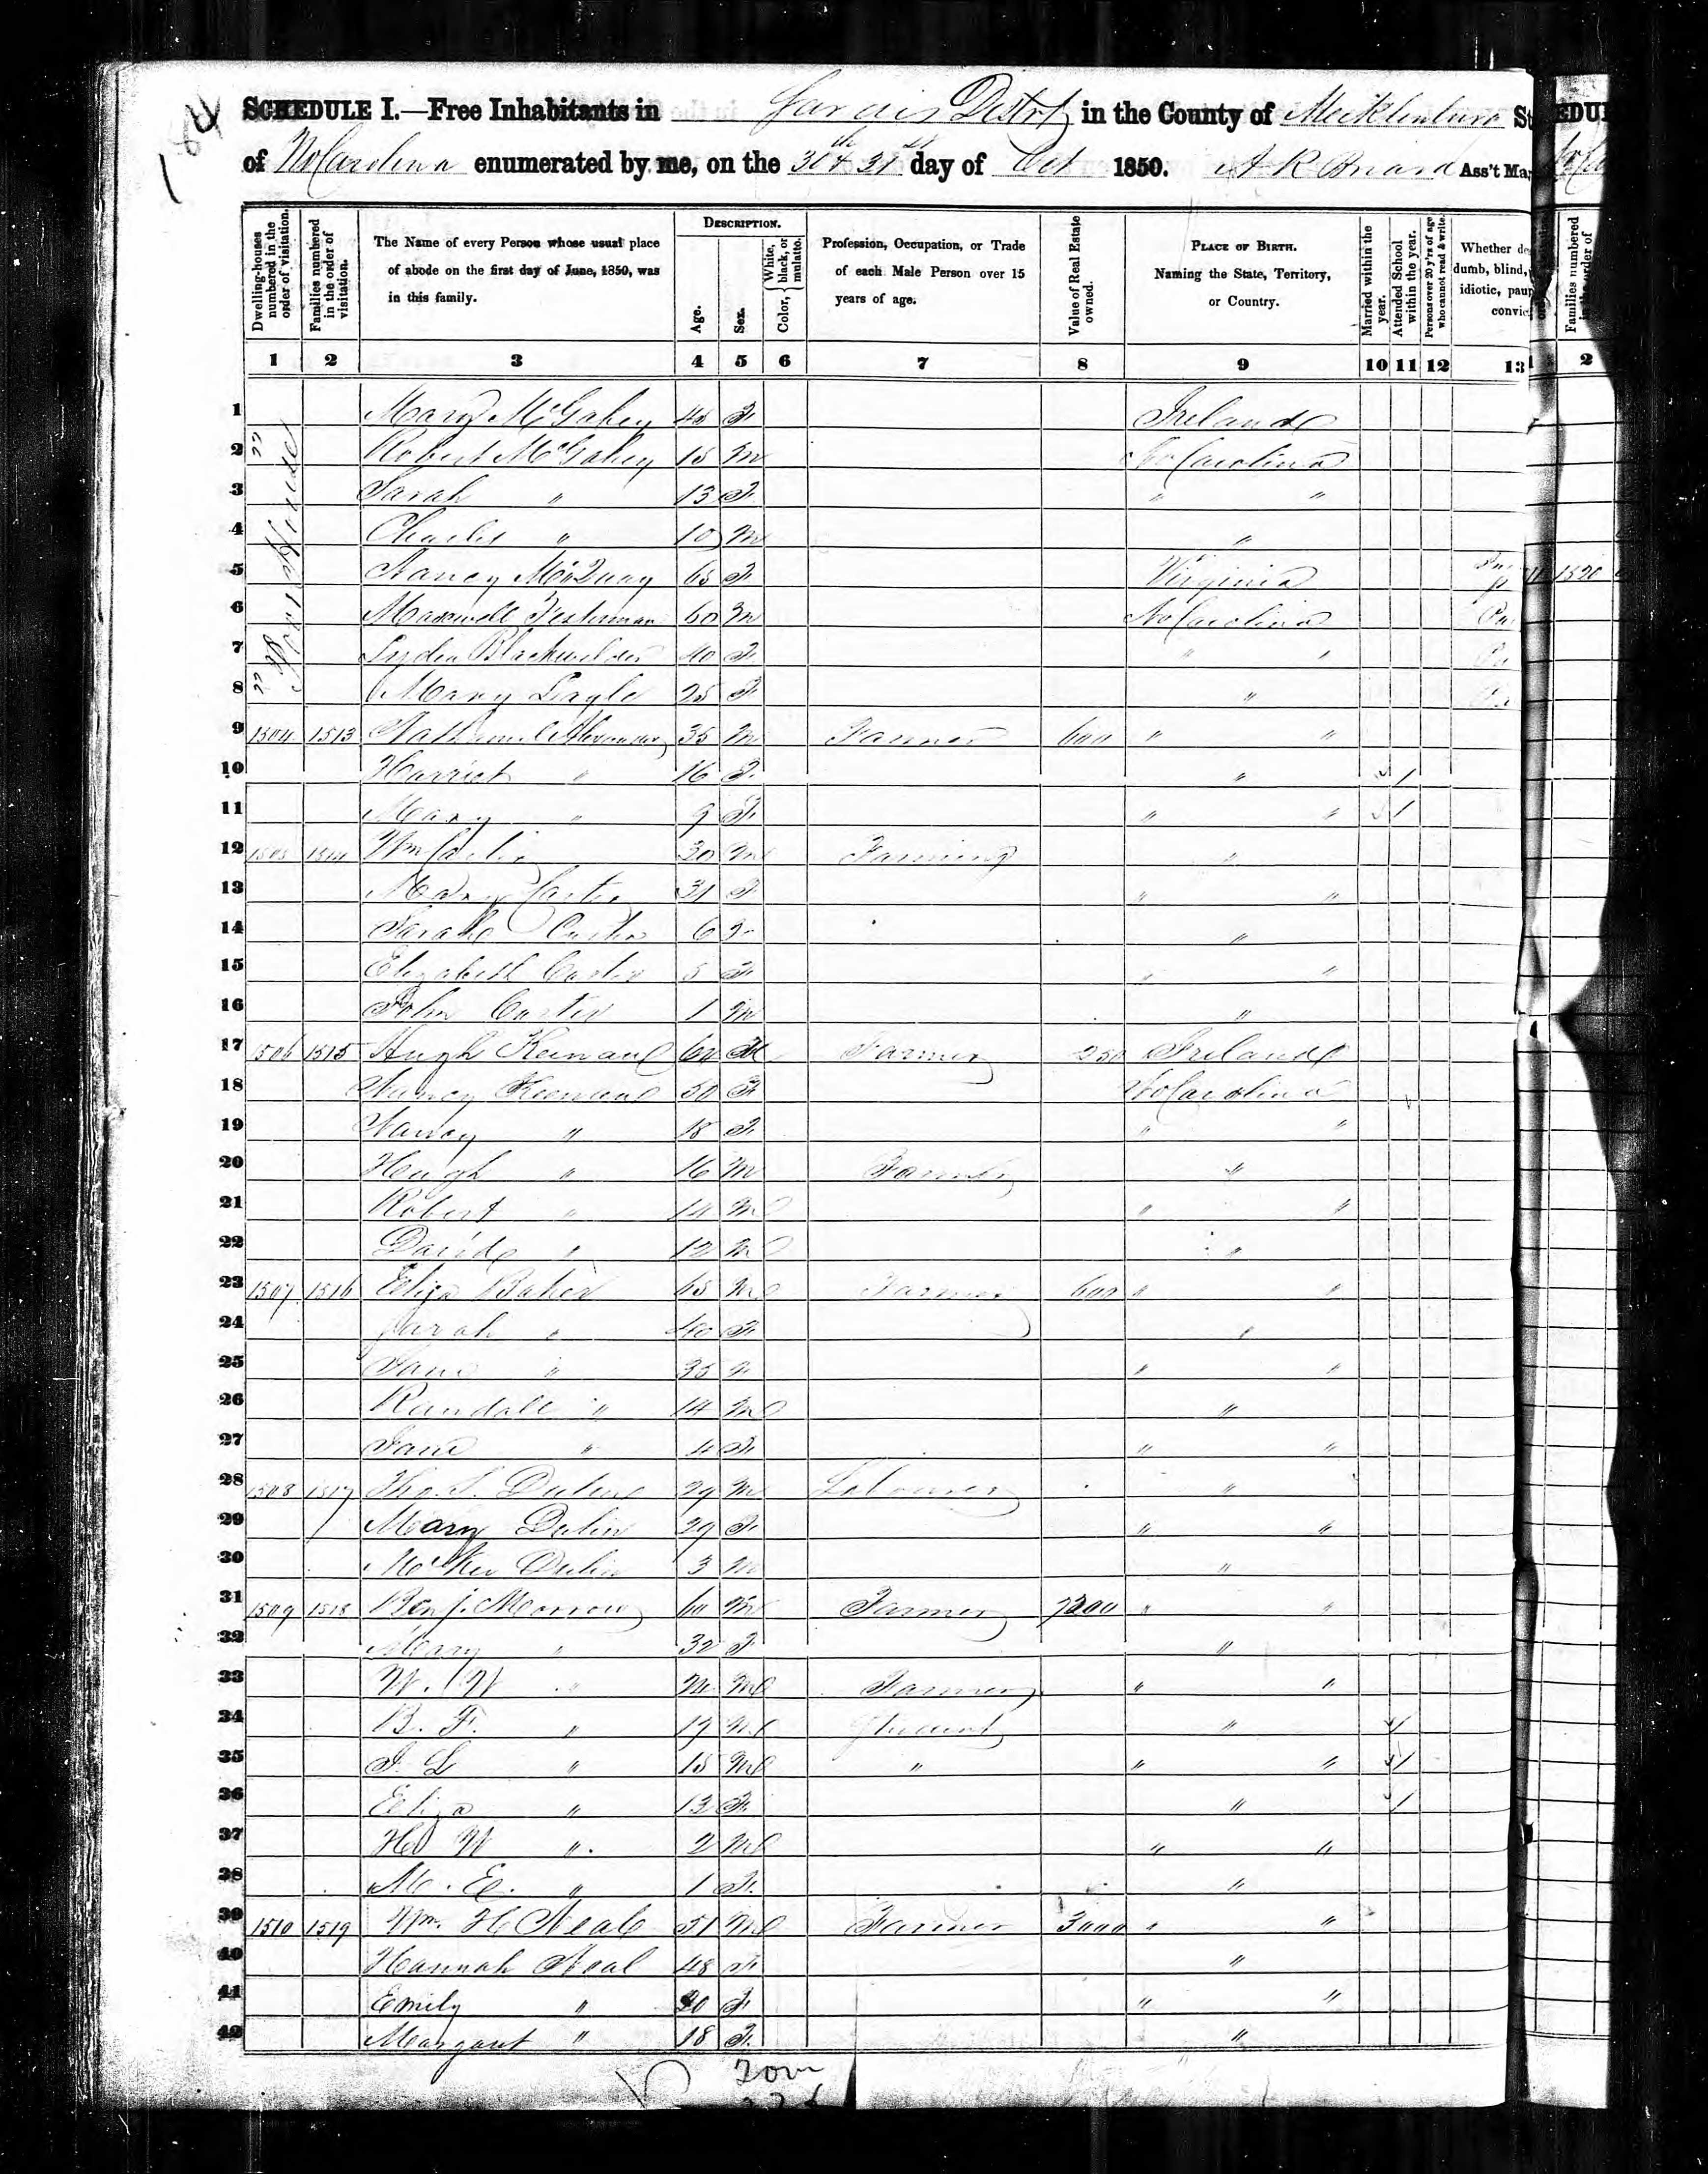 184
SCHEDULE I.—Free Inhabitants in Distrt in the County of Mecklenburg St
of No Carolina enumerated by me, on the 30th & 31st day of Oct 1850. Ass't Ma
Dwelling-houses numbered in the order of visitation.
Families numbered in the order of visitation.
The Name of every Person whose usual place of abode on the first day of June, 1850, was in this family.
DESCRIPTION.
Age.
Sex.
Color, { White, black, or mulatto.
Profession, Occupation, or Trade of each Male Person over 15 years of age.
Value of Real Estate owned.
PLACE OF BIRTH. Naming the State, Territory, or Country.
Married within the year.
Attended School within the year.
Persons over 20 y'rs of age who cannot read & write.
Whether de dumb, blind, idiotic, paup convic
1 2 3 4 5 6 7 8 9 10 11 12 13
Poor House
1 Mary McGahey 45 F Ireland
2 Robert McGahey 15 M No Carolina
3 Sarah " 13 F " "
4 Charles " 10 M "
5 Nancy McQuay 65 F Virginia
6 Maxwell 60 M No Carolina
7 Blackwelder 40 F " "
8 Mary 25 F "
9 1504 1513 Nathaniel Alexander 35 M Farmer 600 " "
10 Harriet " 16 F " 1
11 Mary " 9 F " " 1
12 1505 1514 Wm Carter 30 M Farming "
13 Mary Carter 31 F " "
14 Sarah Carter 6 F "
15 Elizabeth Carter 5 F " "
16 John Carter 1 M "
17 1506 1515 Hugh Keenan 62 M Farmer 250 Ireland
18 Nancy Keenan 50 F No Carolina
19 Nancy " 18 F " "
20 Hugh " 16 M Farmer "
21 Robert " 14 M " "
22 David " 12 M "
23 1507 1516 Eliza Baker 65 M Farmer 600 " "
24 Sarah " 40 F "
25 Jane " 35 F " "
26 Randall " 14 M "
27 Jane " 4 F " "
28 1508 1517 Tho. S. Dulin 29 M Labourer "
29 Mary Dulin 29 F " "
30 Dulin 3 M "
31 1509 1518 Benj. Morrow 60 M Farmer 7200 " "
32 Mary " 32 F "
33 W. W " 21 M Farmer " "
34 B. F. " 17 M Student " 1
35 J L " 15 M " " " 1
36 Eliza " 13 F " 1
37 H W " 2 M " "
38 M. E. " 1 F "
39 1510 1519 Wm. H Neal 51 M Farmer 3000 " "
40 Hannah Neal 48 F "
41 Emily " 20 F " "
42 Margaret " 18 F "
EDUL
Families numbered in the order of
2
1520